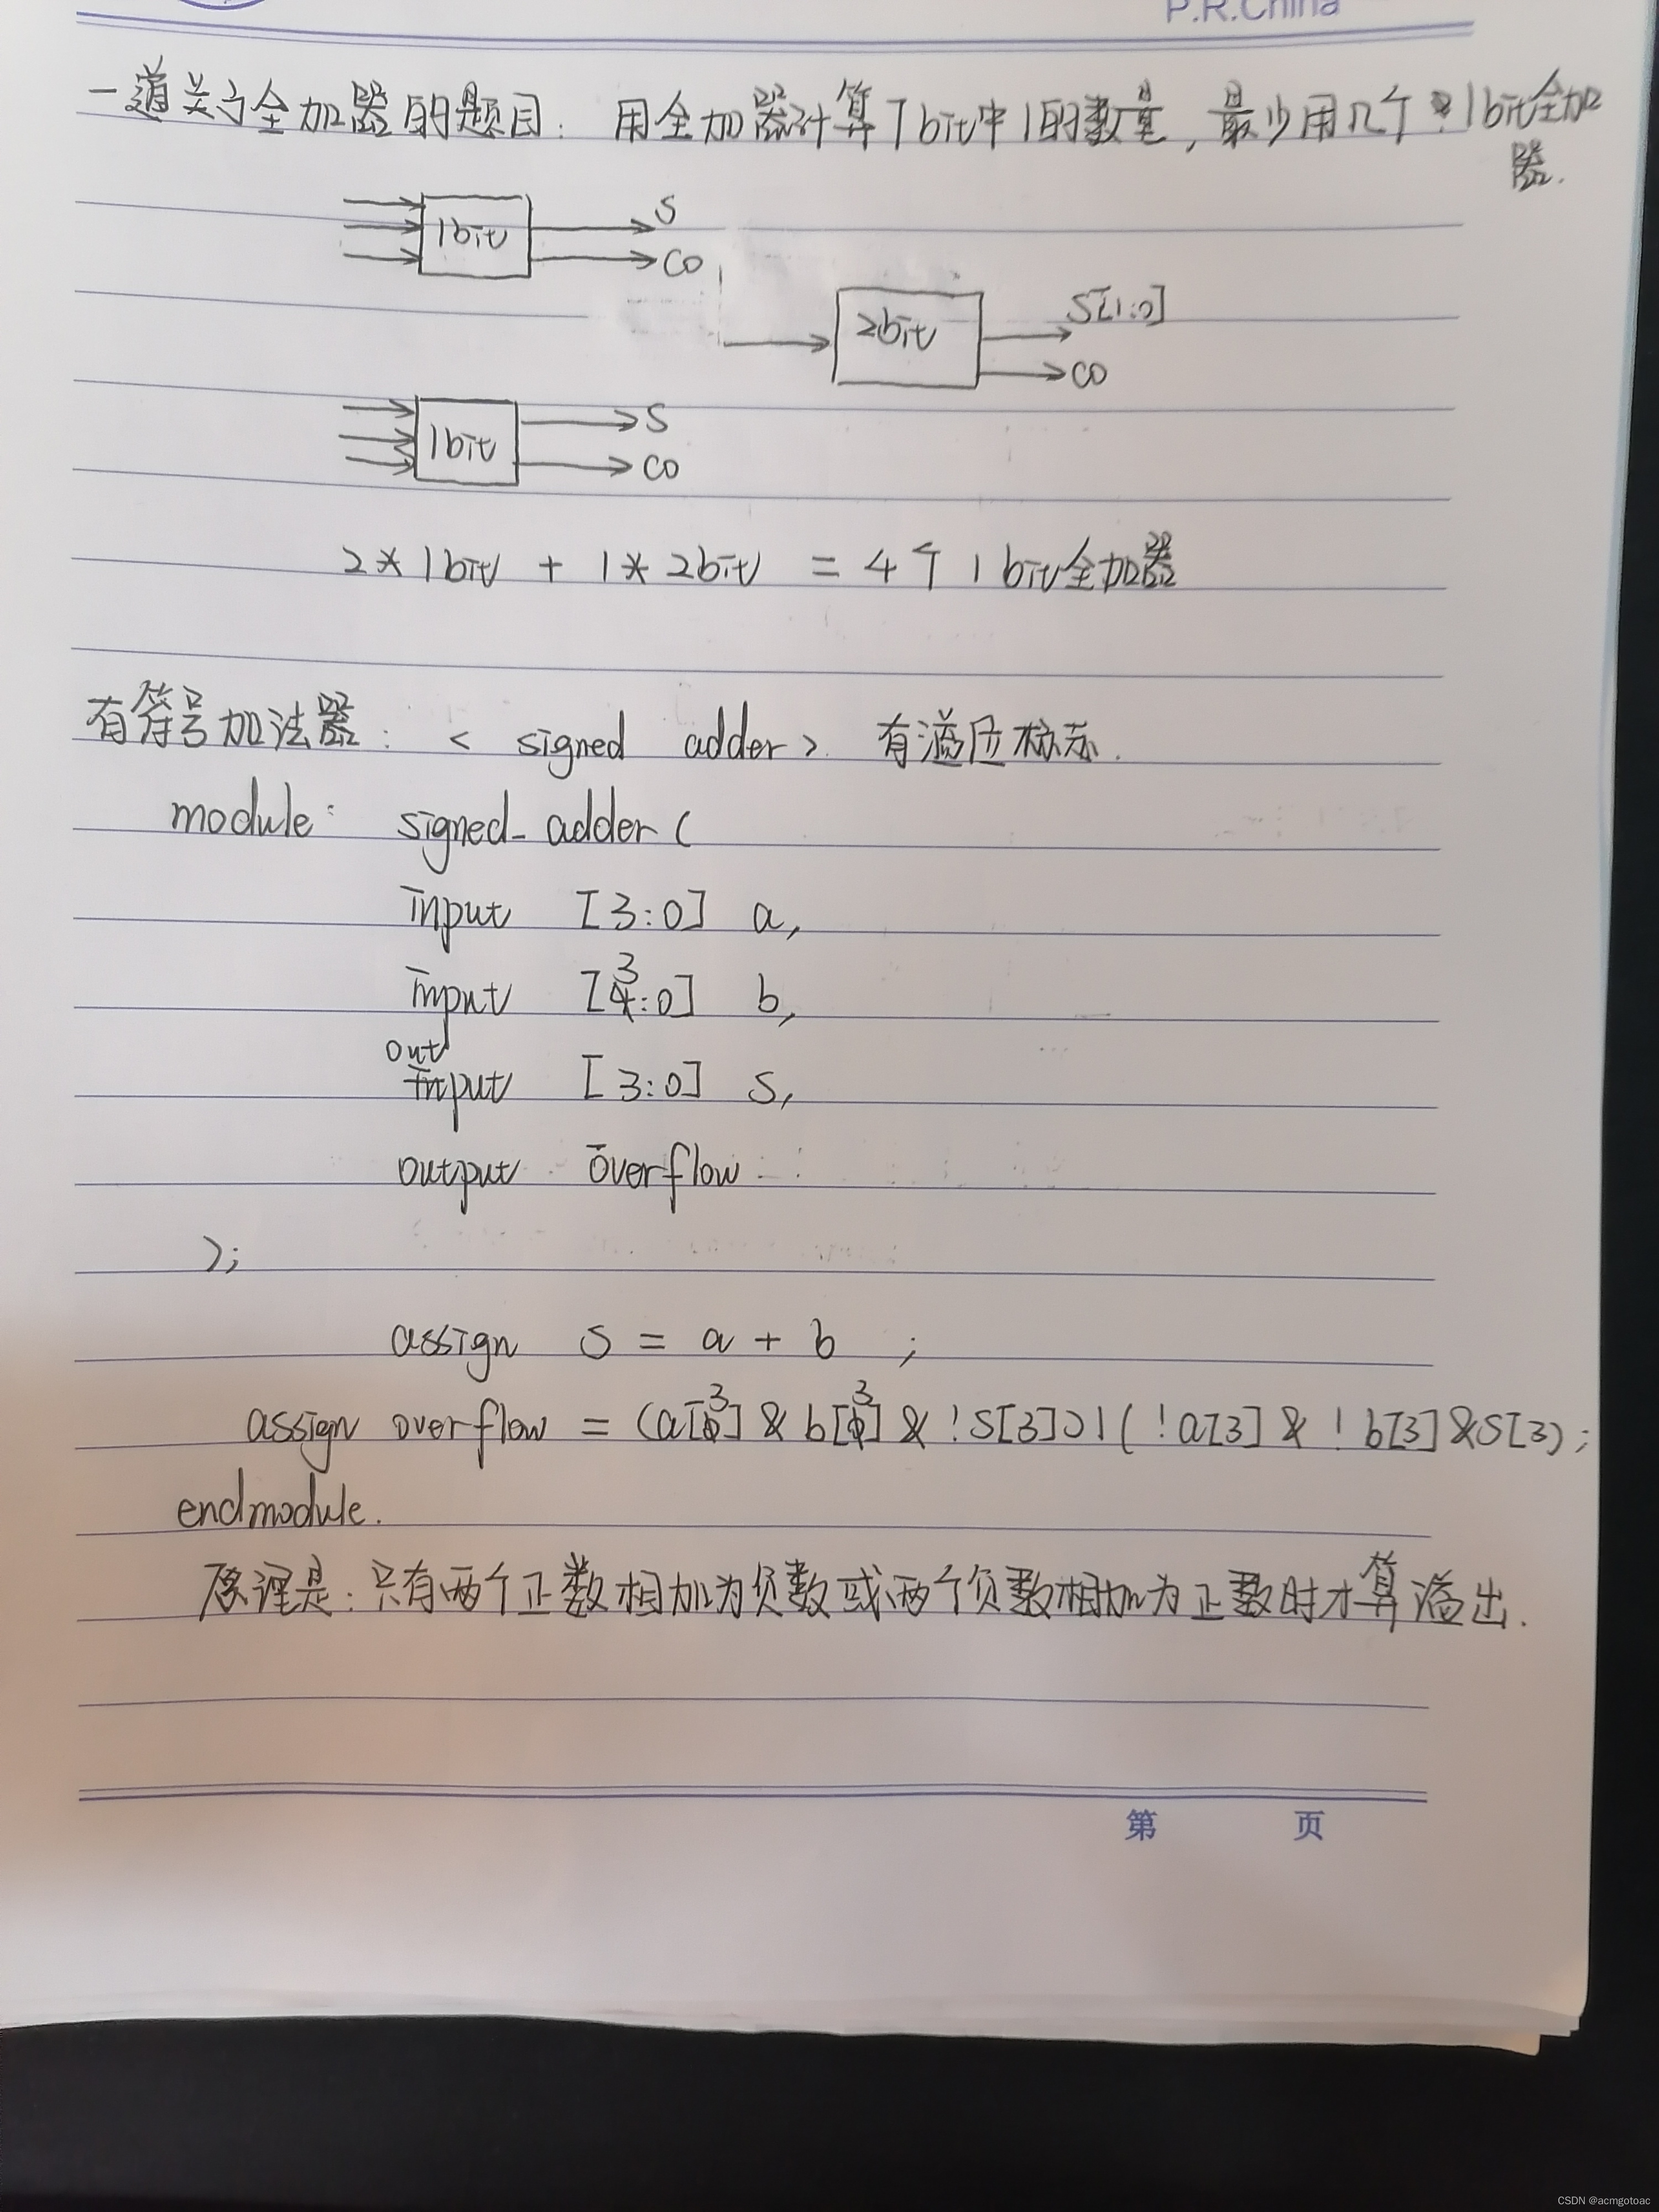 P.R.China
一道关于全加器的题目: 用全加器计算7bit中1的数量,最少用几个1bit全加
器.
1bit
S
CO
2bit
S[1:0]
CO
1bit
S
CO
2*1bit + 1*2bit = 4个1bit全加器
有符号加法器: < signed adder> 有溢位标示.
module: signed_adder(
input [3:0] a,
input [3:0] b,
output [3:0] s,
output overflow
);
assign s = a + b ;
assign overflow = (a[3] & b[3] & !s[3])|(!a[3] & !b[3]&s[3);
endmodule.
原理是:只有两个正数相加为负数或两个负数相加为正数时才算溢出.
第 页
CSDN @acmgotoac